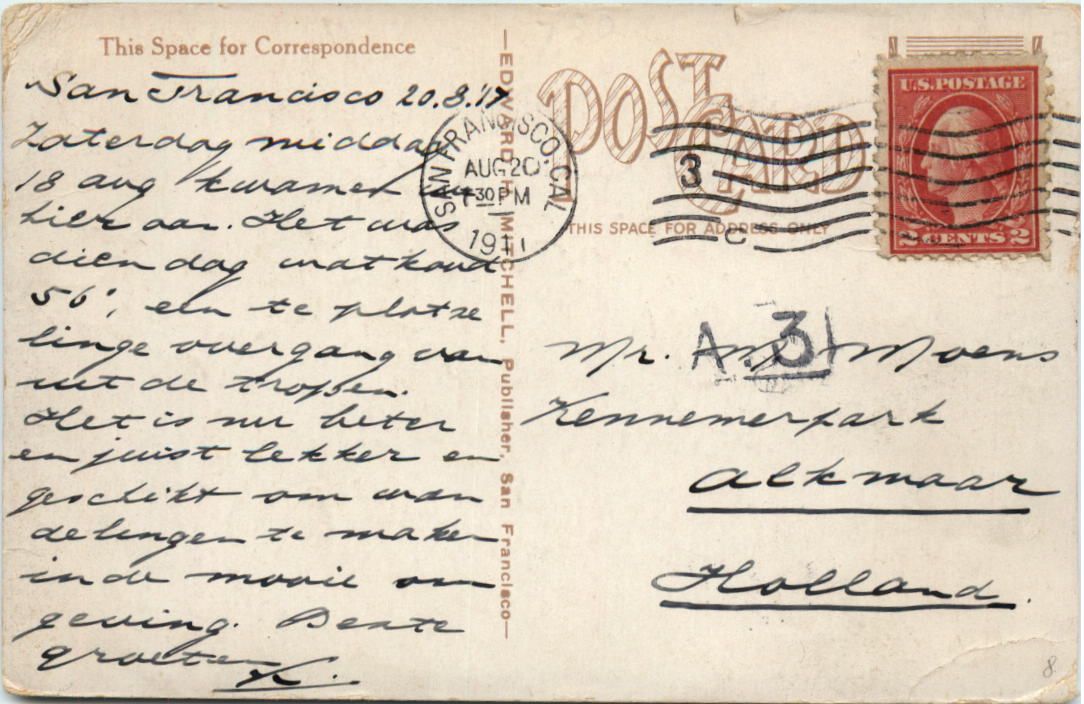 This Space for Correspondence
San Francisco 20.8.17
Zaterdag middag
18 aug kwamen we
hier aan. Het was
dien dag wat koud
56°, een te plotse
linge overgang van
uit de tropen.
Het is nu beter
en juist lekker en
geschikt om wan
delingen te maken
in de mooie om
geving. Beste
groeten K.
—EDWARD H. MITCHELL, Publisher, San Francisco—
POST CARD
THIS SPACE FOR ADDRESS ONLY
SAN FRANCISCO, CAL.
AUG 20
7 30 PM
1917
3
C
U.S. POSTAGE
2 CENTS 2
A. 31
Mr. Moens
Kennemerpark
Alkmaar
Holland.
8